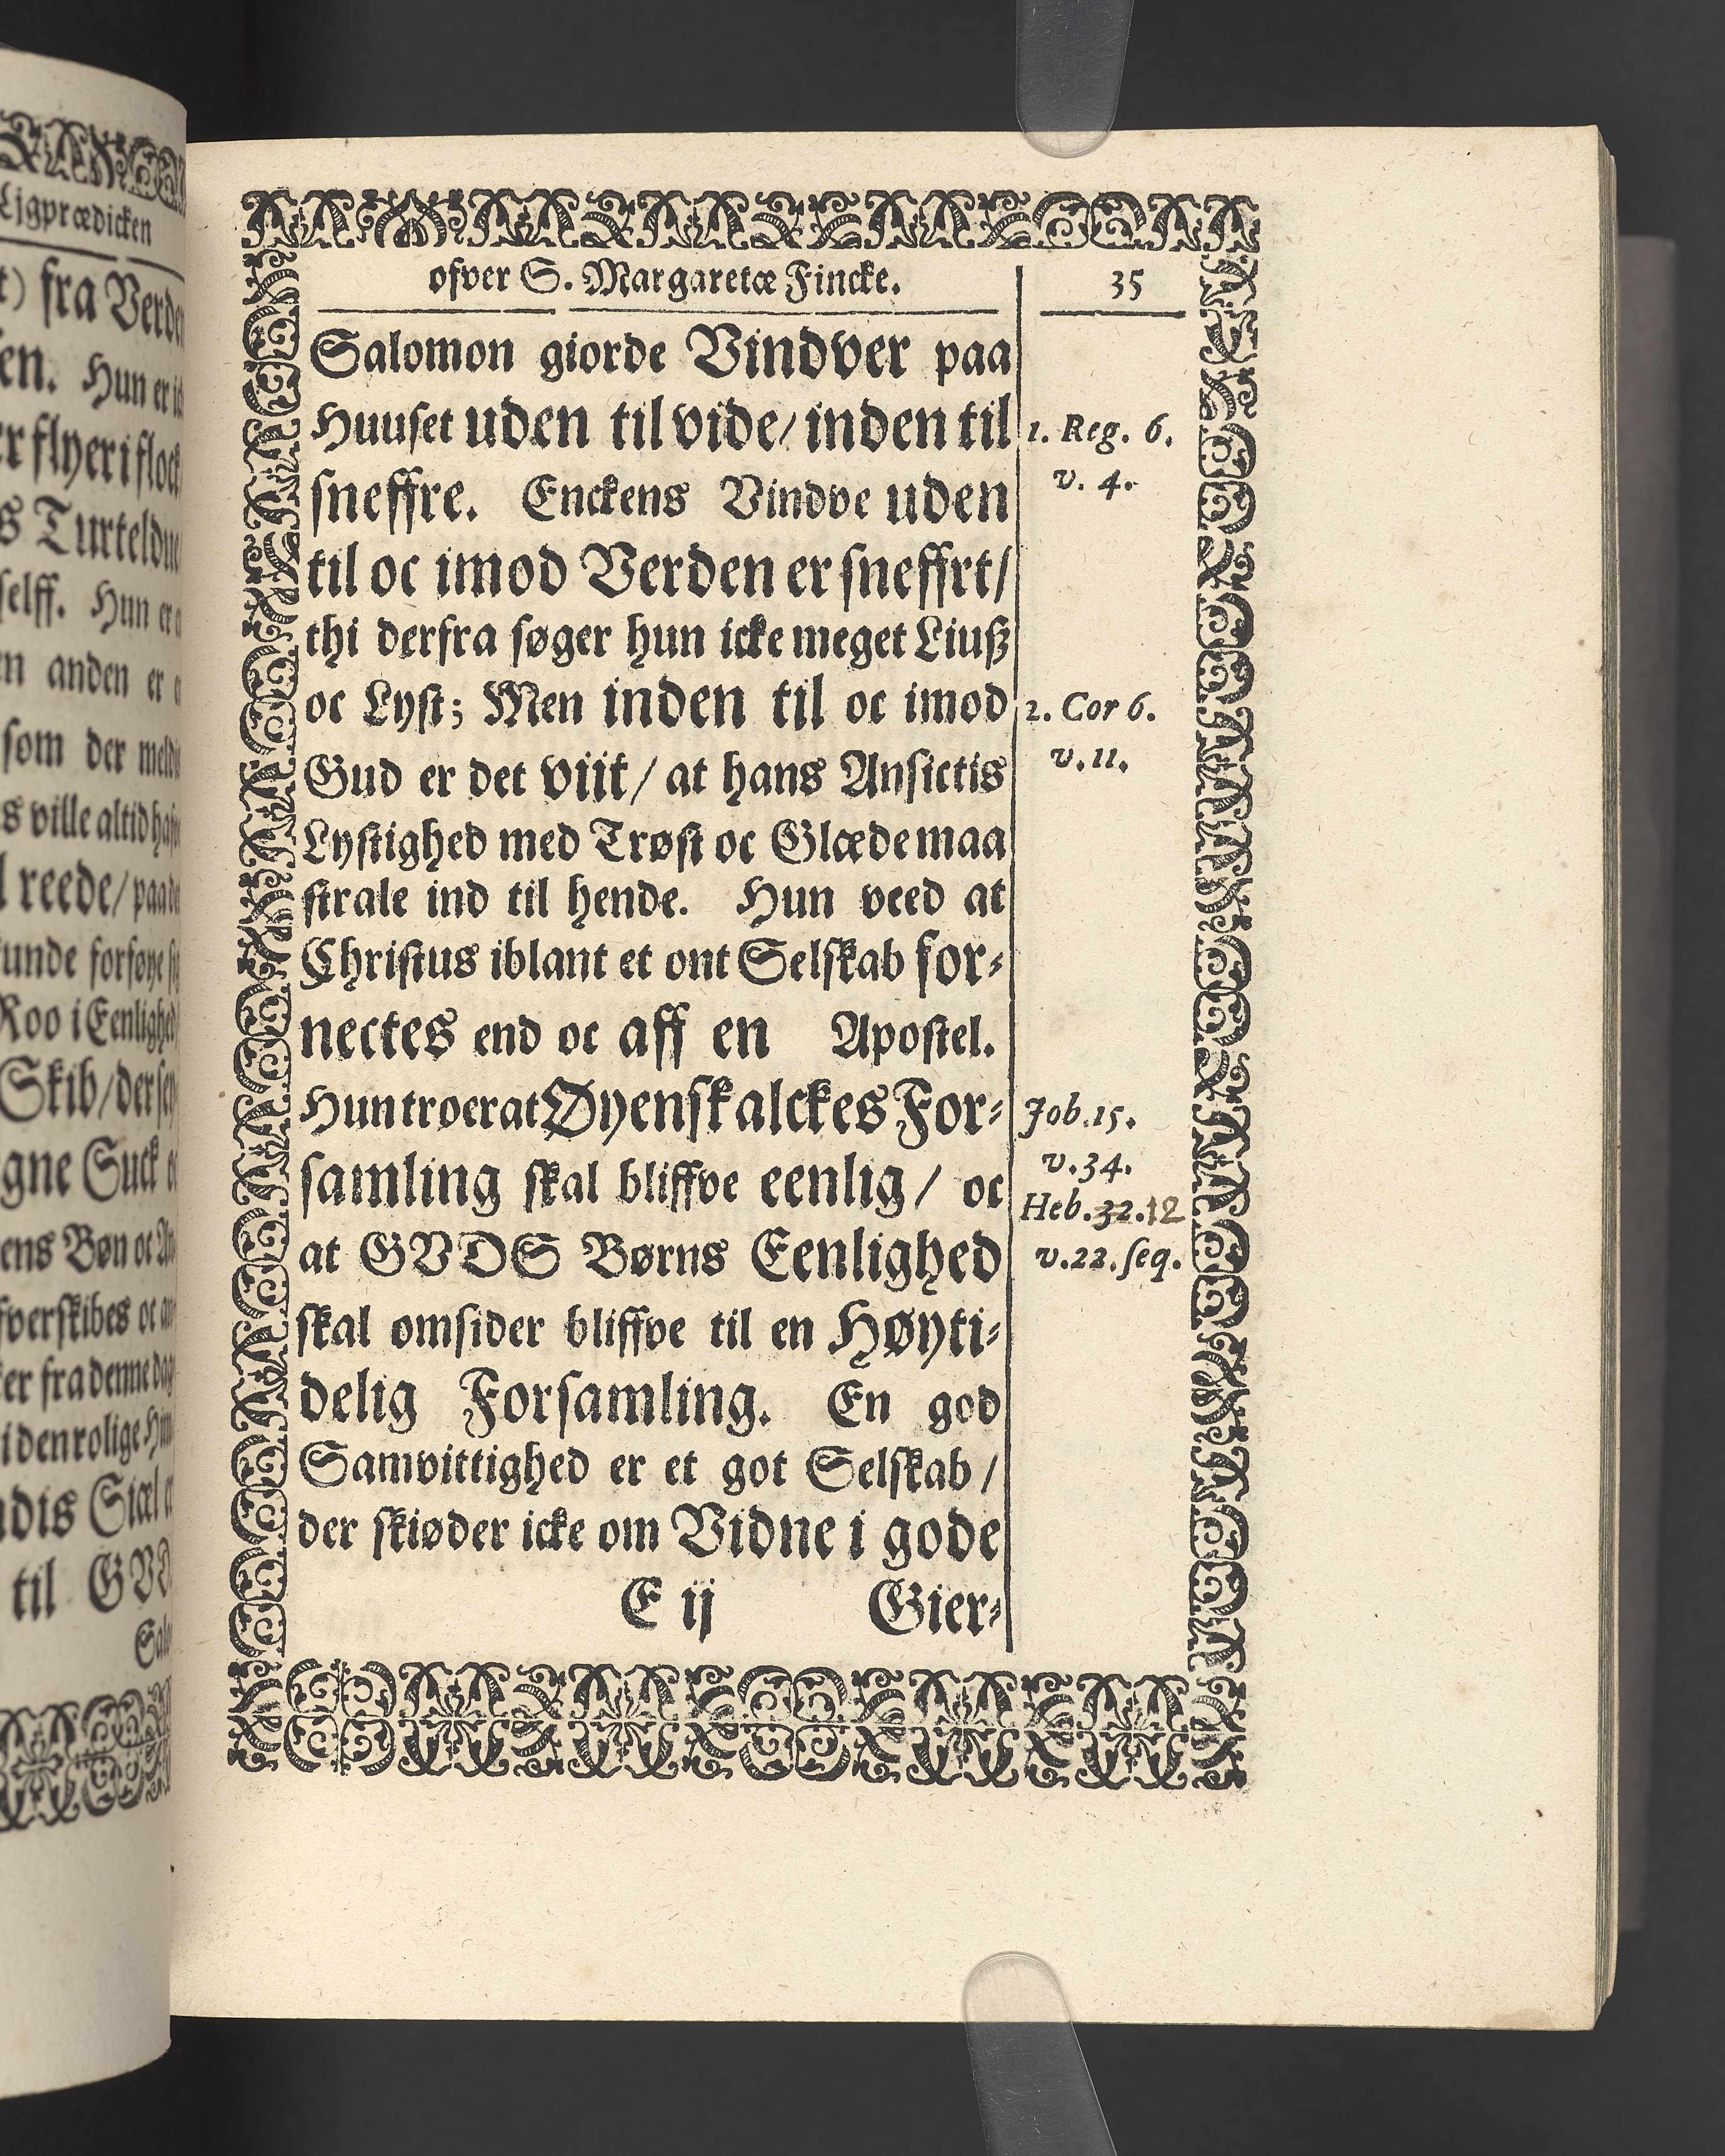 Ljgprædicken
fra
en. Hun er
flyer i
Turteldue
selff. Hun er
anden er
som der
ville altid
reede/ paa
forføye
Roo i Eenlighed
Skib/ der
Suck
ens Bøn oc
fverskibes oc
er fra denne
iden rolige
Siæl
til GVD
ofver S. Margaretæ Fincke. 35
Salomon giorde Vindver paa
Huuset uden til vide/ inden til
sneffre. Enckens Vindve uden
til oc imod Verden er sneffrt/
thi derfra søger hun icke meget Liuß
oc Lyst; Men inden til oc imod
Gud er det viit/ at hans Ansictis
Lystighed med Trøst oc Glæde maa
strale ind til hende. Hun veed at
Christus iblant et ont Selskab for-
nectes end oc aff en Apostel.
Hun troer at Øyenskalckes For-
samling skal bliffve eenlig/ oc
at GVDS Børns Eenlighed
skal omsider bliffve til en Høyti-
delig Forsamling. En god
Samvittighed er et got Selskab/
der skiøder icke om Vidne i gode
E ij Gier-
1. Reg. 6.
v. 4.
2. Cor 6.
v. 11.
Job. 15.
v. 34.
Heb. 32. 12
v. 22. seq.